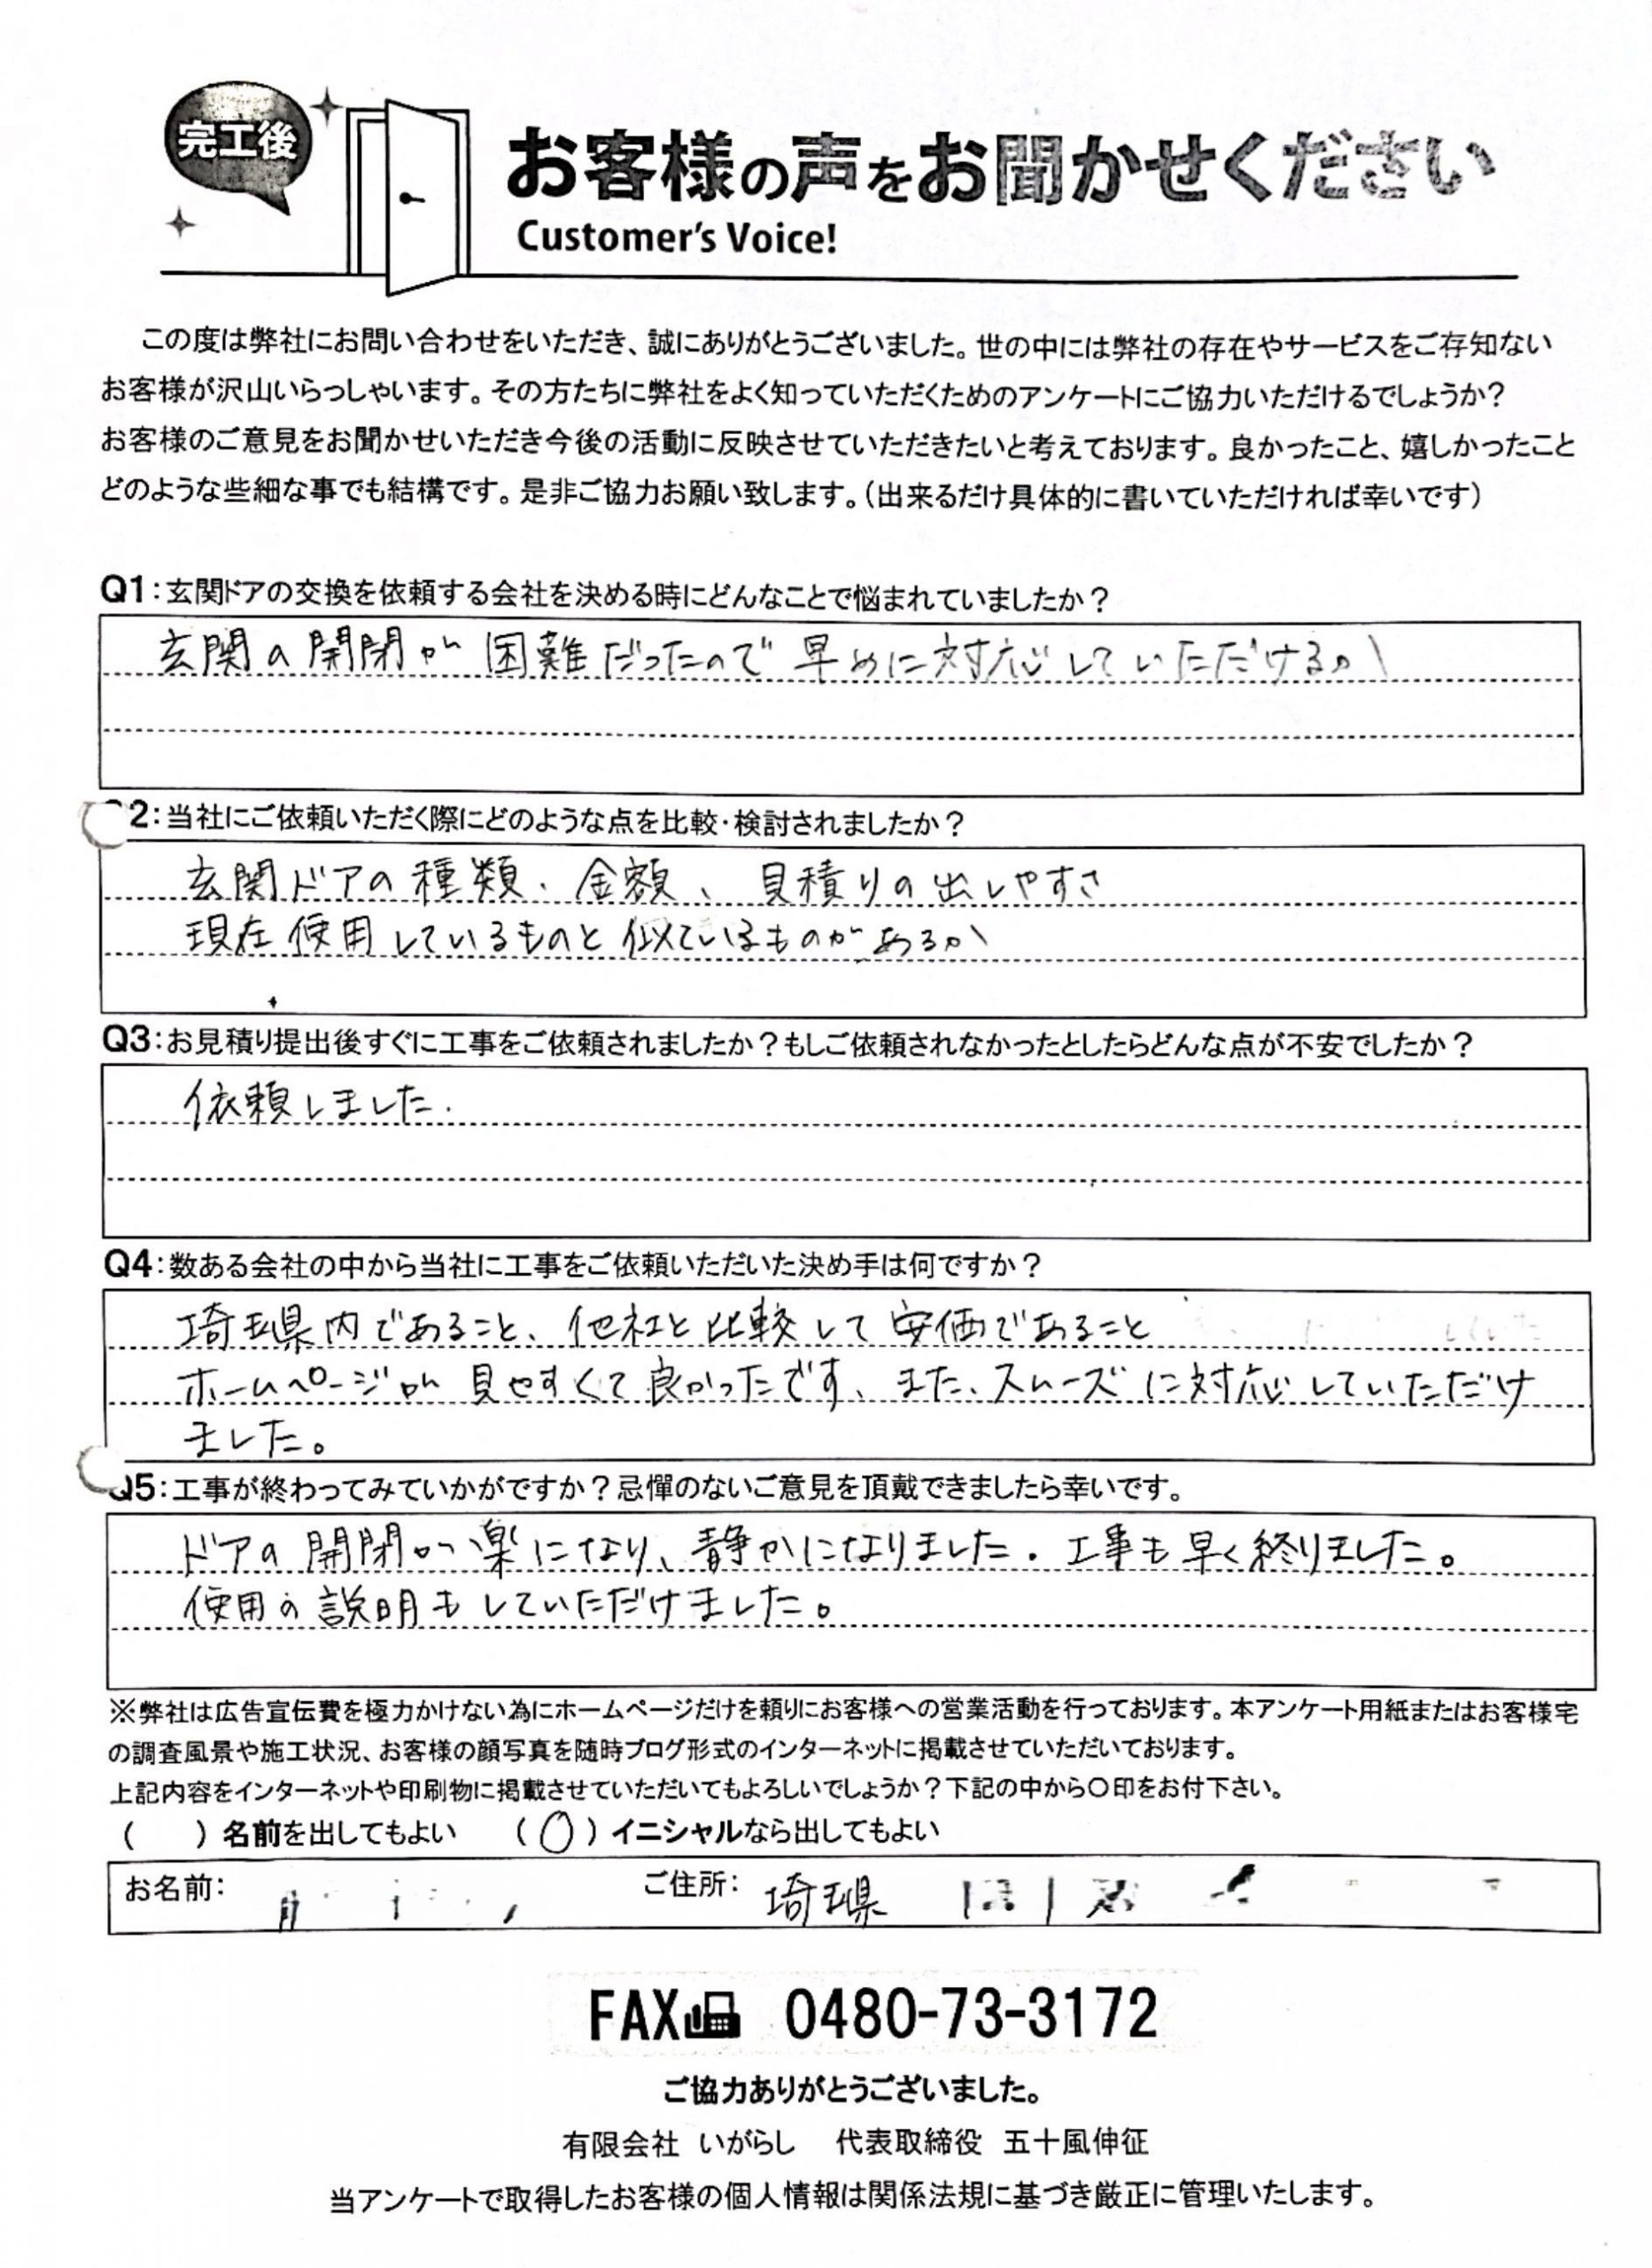 完工後
お客様の声をお聞かせください
Customer's Voice!
この度は弊社にお問い合わせをいただき、誠にありがとうございました。世の中には弊社の存在やサービスをご存知ない
お客様が沢山いらっしゃいます。その方たちに弊社をよく知っていただくためのアンケートにご協力いただけるでしょうか？
お客様のご意見をお聞かせいただき今後の活動に反映させていただきたいと考えております。良かったこと、嬉しかったこと
どのような些細な事でも結構です。是非ご協力お願い致します。（出来るだけ具体的に書いていただければ幸いです）
Q1：玄関ドアの交換を依頼する会社を決める時にどんなことで悩まれていましたか？
玄関の開閉が困難だったので早めに対応していただけるか
2：当社にご依頼いただく際にどのような点を比較・検討されましたか？
玄関ドアの種類、金額、見積りの出しやすさ
現在使用しているものと似ているものがあるか
Q3：お見積り提出後すぐに工事をご依頼されましたか？もしご依頼されなかったとしたらどんな点が不安でしたか？
依頼しました.
Q4：数ある会社の中から当社に工事をご依頼いただいた決め手は何ですか？
埼玉県内であること、他社と比較して安価であること
ホームページが見やすくて良かったです、また、スムーズに対応していただけ
ました。
Q5：工事が終わってみていかがですか？忌憚のないご意見を頂戴できましたら幸いです。
ドアの開閉が楽になり、静かになりました. 工事も早く終りました。
使用の説明もしていただけました。
※弊社は広告宣伝費を極力かけない為にホームページだけを頼りにお客様への営業活動を行っております。本アンケート用紙またはお客様宅
の調査風景や施工状況、お客様の顔写真を随時ブログ形式のインターネットに掲載させていただいております。
上記内容をインターネットや印刷物に掲載させていただいてもよろしいでしょうか？下記の中から〇印をお付下さい。
（　　）名前を出してもよい　（〇）イニシャルなら出してもよい
お名前：　ご住所：埼玉県
FAX 0480-73-3172
ご協力ありがとうございました。
有限会社 いがらし　代表取締役 五十嵐伸征
当アンケートで取得したお客様の個人情報は関係法規に基づき厳正に管理いたします。